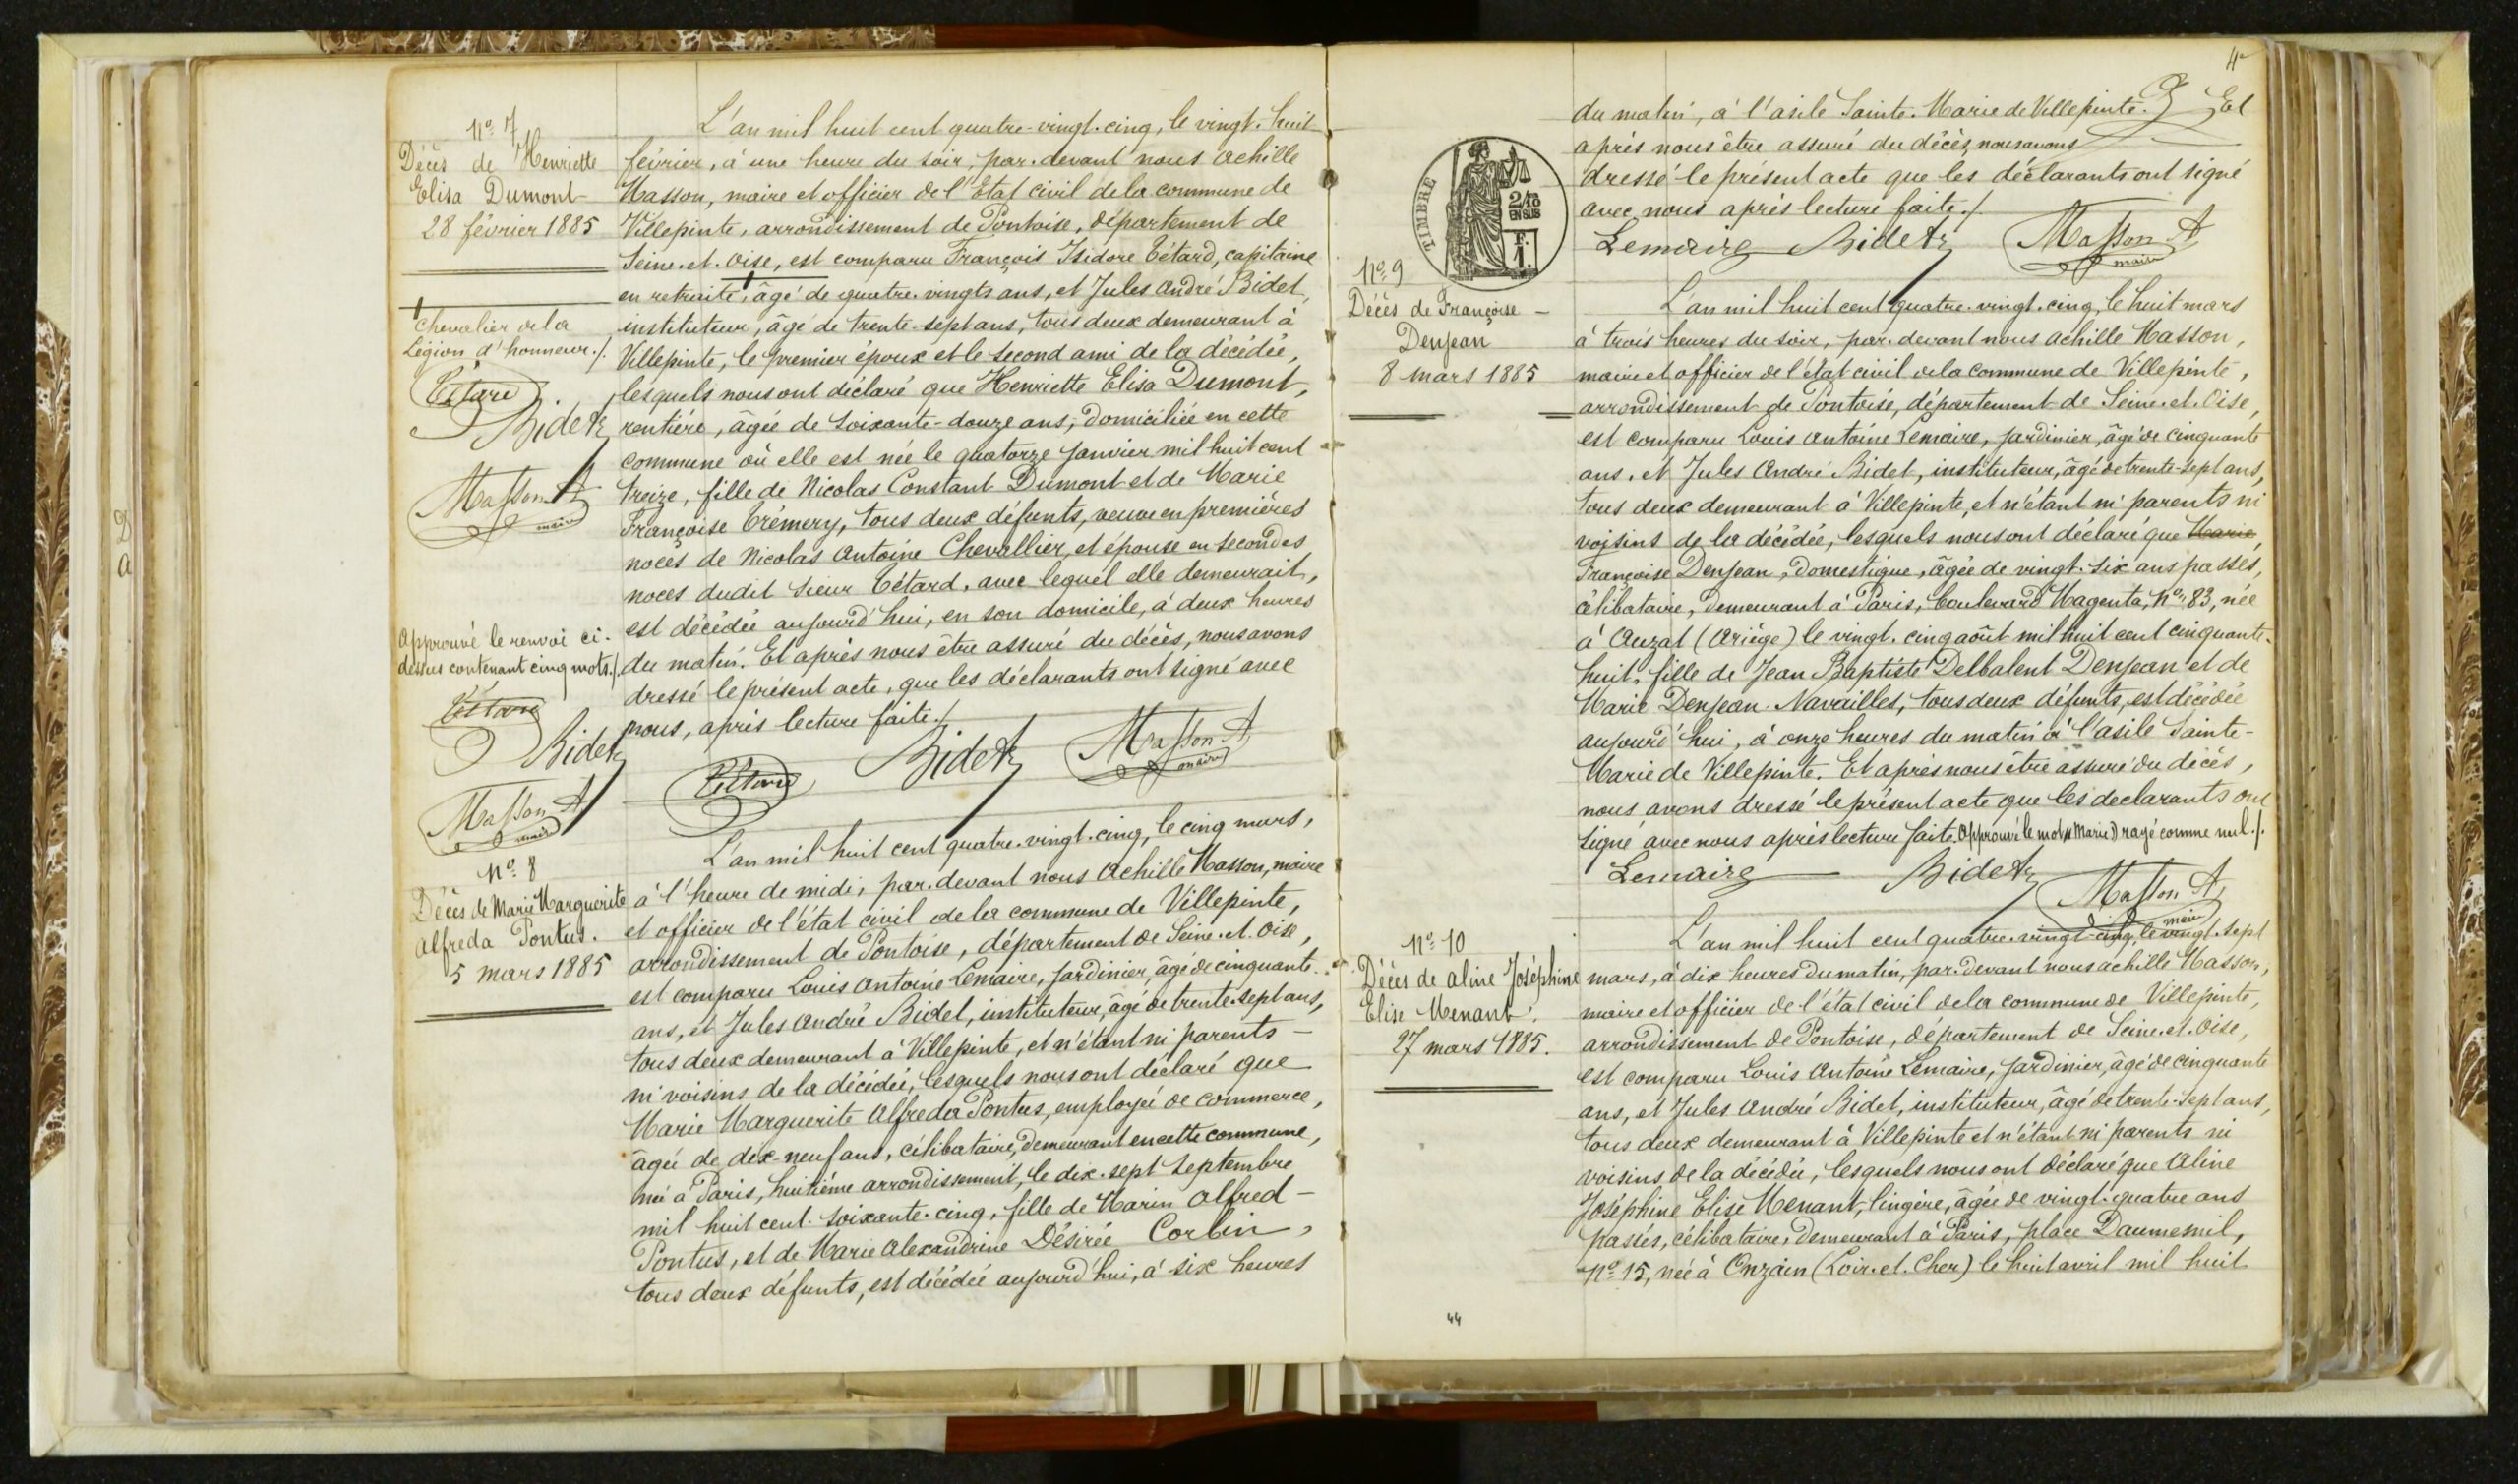 D
A
N° 7
Décès de Henriette
Elisa Dumont
28 février 1885
chevalier de la
Légion d'honneur./.
Tétard
Bidet
Masson A
maire
Approuvé le renvoi ci-
dessus contenant cinq mots./.
Tétard
Bidet
Masson A
maire
L'an mil huit cent quatre-vingt-cinq, le vingt-huit
février, à une heure du soir, par-devant nous Achille
Masson, maire et officier de l'Etat civil de la commune de
Villepinte, arrondissement de Pontoise, département de
Seine-et-Oise, est comparu François Isidore Tétard, capitaine
en retraite, âgé de quatre-vingts ans, et Jules André Bidet,
instituteur, âgé de trente-sept ans, tous deux demeurant à
Villepinte, le premier époux et le second ami de la décédée,
lesquels nous ont déclaré que Henriette Elisa Dumont,
rentière, âgée de soixante-douze ans, domiciliée en cette
commune où elle est née le quatorze janvier mil huit cent
treize, fille de Nicolas Constant Dumont et de Marie
Françoise Trémery, tous deux défunts, veuve en premières
noces de Nicolas Antoine Chevallier, et épouse en secondes
noces dudit sieur Tétard, avec lequel elle demeurait,
est décédée aujourd'hui, en son domicile, à deux heures
du matin. Et après nous être assuré du décès, nous avons
dressé le présent acte, que les déclarants ont signé avec
nous, après lecture faite./.
Tétard Bidet Masson A
maire
N° 8
Décès de Marie Marguerite
Alfreda Pontus.
5 mars 1885
L'an mil huit cent quatre-vingt-cinq, le cinq mars,
à l'heure de midi, par-devant nous Achille Masson, maire
et officier de l'état civil de la commune de Villepinte,
arrondissement de Pontoise, département de Seine-et-Oise,
est comparu Louis Antoine Lemaire, jardinier, âgé de cinquante
ans, et Jules André Bidet, instituteur, âgé de trente-sept ans,
tous deux demeurant à Villepinte, et n'étant ni parents
ni voisins de la décédée, lesquels nous ont déclaré que
Marie Marguerite Alfreda Pontus, employée de commerce,
âgée de dix-neuf ans, célibataire, demeurant en cette commune,
née à Paris, huitième arrondissement, le dix-sept septembre
mil huit cent soixante-cinq, fille de Marin Alfred
Pontus, et de Marie Alexandrine Désirée Corbin,
tous deux défunts, est décédée aujourd'hui, à six heures
4
du matin, à l'asile Sainte-Marie de Villepinte. Et
après nous être assuré du décès, nous avons
dressé le présent acte que les déclarants ont signé
avec nous après lecture faite./.
Lemaire Bidet Masson A
maire
TIMBRE
2/10
EN SUS
F.
1.
N° 9
Décès de Françoise
Denjean
8 mars 1885
L'an mil huit cent quatre-vingt-cinq, le huit mars
à trois heures du soir, par-devant nous Achille Masson,
maire et officier de l'état civil de la commune de Villepinte,
arrondissement de Pontoise, département de Seine-et-Oise,
est comparu Louis Antoine Lemaire, jardinier, âgé de cinquante
ans, et Jules André Bidet, instituteur, âgé de trente-sept ans,
tous deux demeurant à Villepinte, et n'étant ni parents ni
voisins de la décédée, lesquels nous ont déclaré que Marie,
Françoise Denjean, domestique, âgée de vingt-six ans passés,
célibataire, demeurant à Paris, boulevard Magenta, N° 83, née
à Auzat (Ariège) le vingt-cinq août mil huit cent cinquante-
huit, fille de Jean Baptiste Delbalent Denjean et de
Marie Denjean Navailles, tous deux défunts, est décédée
aujourd'hui, à onze heures du matin à l'asile Sainte-
Marie de Villepinte. Et après nous être assuré du décès,
nous avons dressé le présent acte que les déclarants ont
signé avec nous après lecture faite. Approuvé le mot « Marie » rayé comme nul./.
Lemaire Bidet Masson A
maire
N° 10
Décès de Aline Joséphine
Elise Menant.
27 mars 1885.
L'an mil huit cent quatre-vingt-cinq, le vingt-sept
mars, à dix heures du matin, par-devant nous Achille Masson,
maire et officier de l'état civil de la commune de Villepinte,
arrondissement de Pontoise, département de Seine-et-Oise,
est comparu Louis Antoine Lemaire, jardinier, âgé de cinquante
ans, et Jules André Bidet, instituteur, âgé de trente-sept ans,
tous deux demeurant à Villepinte et n'étant ni parents ni
voisins de la décédée, lesquels nous ont déclaré que Aline
Joséphine Elise Menant, lingère, âgée de vingt-quatre ans
passés, célibataire, demeurant à Paris, place Daumesnil,
N° 15, née à Onzain (Loir-et-Cher) le huit avril mil huit
44